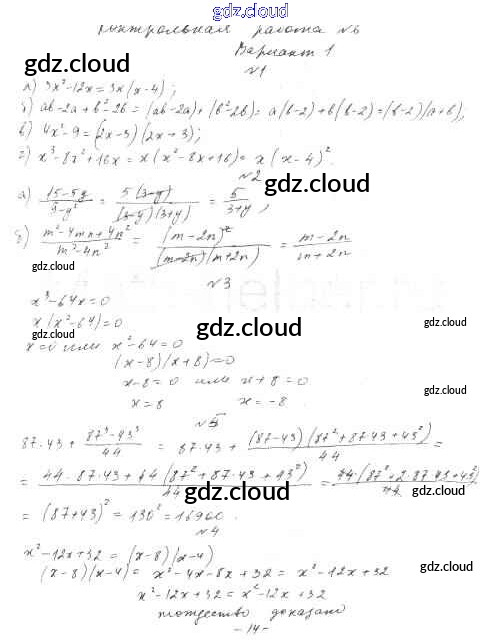 gdz.cloud
Контрольная работа №6
gdz.cloud
Вариант 1
№1
gdz.cloud
а) 3x²-12x=3x(x-4);
б) ab-2a+b²-2b=(ab-2a)+(b²-2b)=a(b-2)+b(b-2)=(b-2)(a+b);
в) 4x²-9=(2x-3)(2x+3);
г) x³-8x²+16x=x(x²-8x+16)=x(x-4)².
№2
gdz.cloud
а) (15-5y)/(9-y²) = 5(3-y)/((3-y)(3+y)) = 5/(3+y);
б) (m²-4mn+4n²)/(m²-4n²) = (m-2n)²/((m-2n)(m+2n)) = (m-2n)/(m+2n)
gdz.cloud
gdz.cloud
№3
x³-64x=0
x(x²-64)=0
gdz.cloud
gdz.cloud
gdz.cloud
x=0 или x²-64=0
(x-8)(x+8)=0
x-8=0 или x+8=0
gdz.cloud
x=8 x=-8.
№5
87·43 + (87³-43³)/44 = 87·43 + (87-43)(87²+87·43+43²)/44 =
= (44·87·43+44(87²+87·43+43²))/44 = 44(87²+2·87·43+43²)/44
gdz.cloud
gdz.cloud
gdz.cloud
= (87+43)²=130²=16900.
№4
x²-12x+32=(x-8)(x-4)
(x-8)(x-4)=x²-4x-8x+32=x²-12x+32
gdz.cloud
x²-12x+32=x²-12x+32
gdz.cloud
gdz.cloud
тождество доказано
-14-